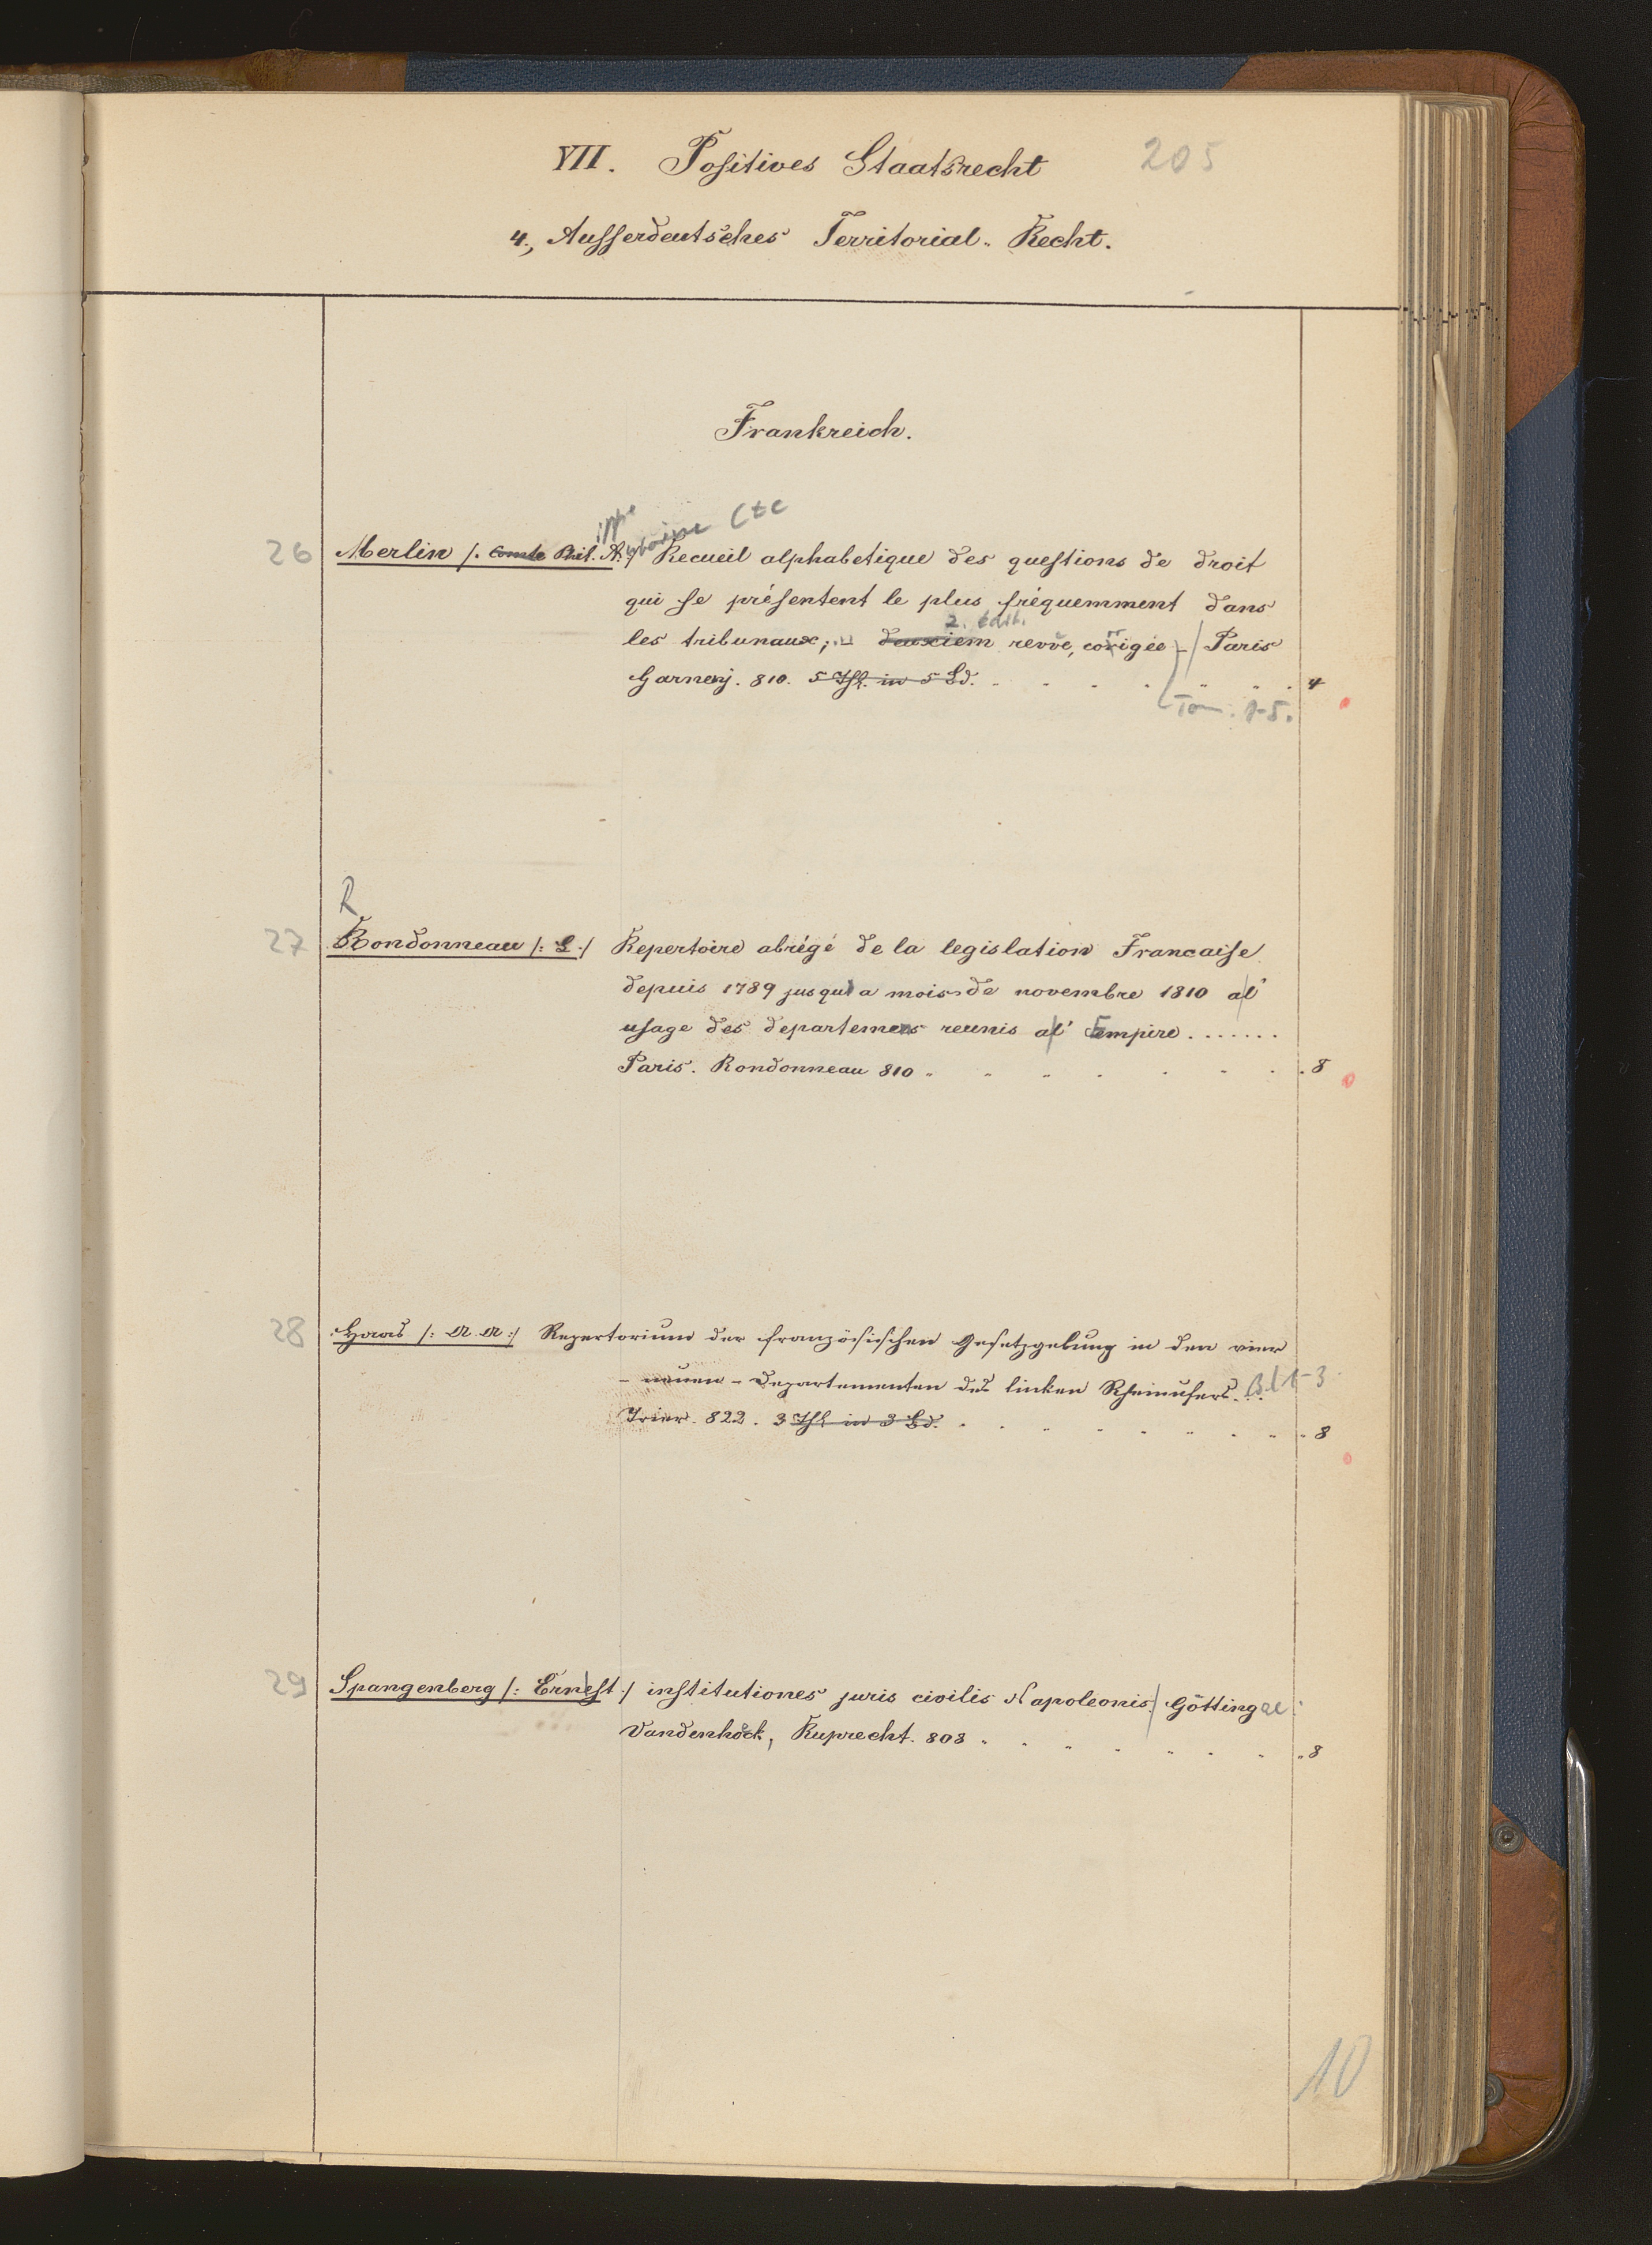 VII. Positives Staatsrecht 205
4., Ausserdeutsches Territorial-Recht.
Frankreich.
ippe ntoine Cte
26 Merlin /. Comte Phil. A. :/ Recueil alphabetique des questions de droit
qui se présentent le plus fréquemment dans
2. édit.
les tribunaux; deuxiem revûe, corrigée - / Paris
Garnery. 810. 5 Thl. in 5 Bd. 4
Tom. 1-5.
R
27 Rondonneau /: L :/ Repertoire abrégé de la legislation Francaise
depuis 1789 jusqu'a mois de novembre 1810 a l'
usage des departemens reunis a l' Empire .......
Paris. Rondonneau 810 8
28 Haas /: A. A. :/ Repertorium der französischen Gesetzgebung in den vier
- neuen - Departementen des linken Rheinufers. Bd 1-3
Trier. 822. 3 Thl in 3 Bd. 8
29 Spangenberg /: Ernest :/ institutiones juris civilis Napoleonis / Göttingae
Vandenhöck, Ruprecht. 808 8
10